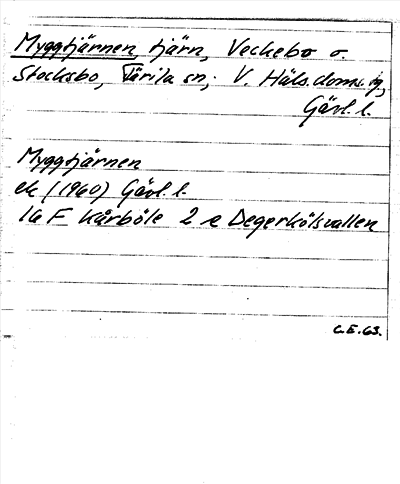 Myggtjärnen, tjärn, Veckebo o.
Stocksbo, Färila sn; V. Häls. doms. tg,
Gävl. l.
Myggtjärnen
ek (1960) Gävl. l.
16 F Kårböle 2 e Degerkölsvallen
C.E. 63.